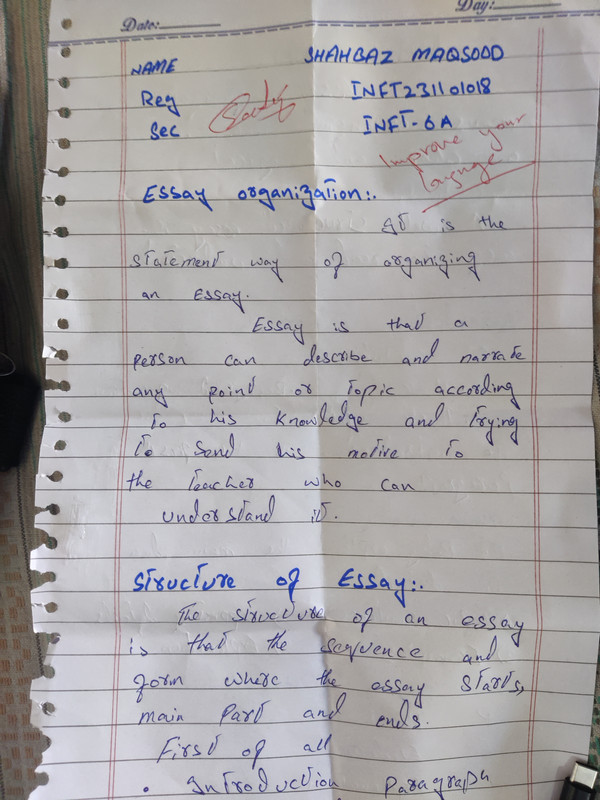 Date:
Day:
NAME SHAHBAZ MAQSOOD
Reg INFT231101018
Sec INFT-6A
Improve your
Essay organization:.
It is the
statement way of organizing
an essay.
Essay is that a
person can describe and narrate
any point or topic according
to his knowledge and trying
to send his motive to
the teacher who can
understand it.
Structure of Essay:.
The structure of an essay
is that the sequence and
form where the essay starts,
main part and ends.
First of all
• Introduction Paragraph